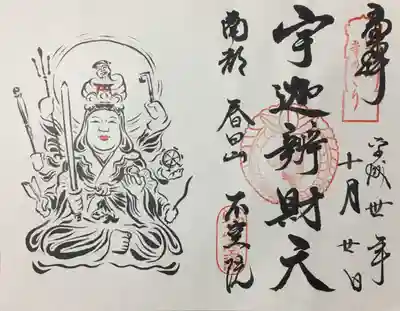 奉拝
平成丗年
十月廿日
宇迦辨財天
南都
春日山
不空院